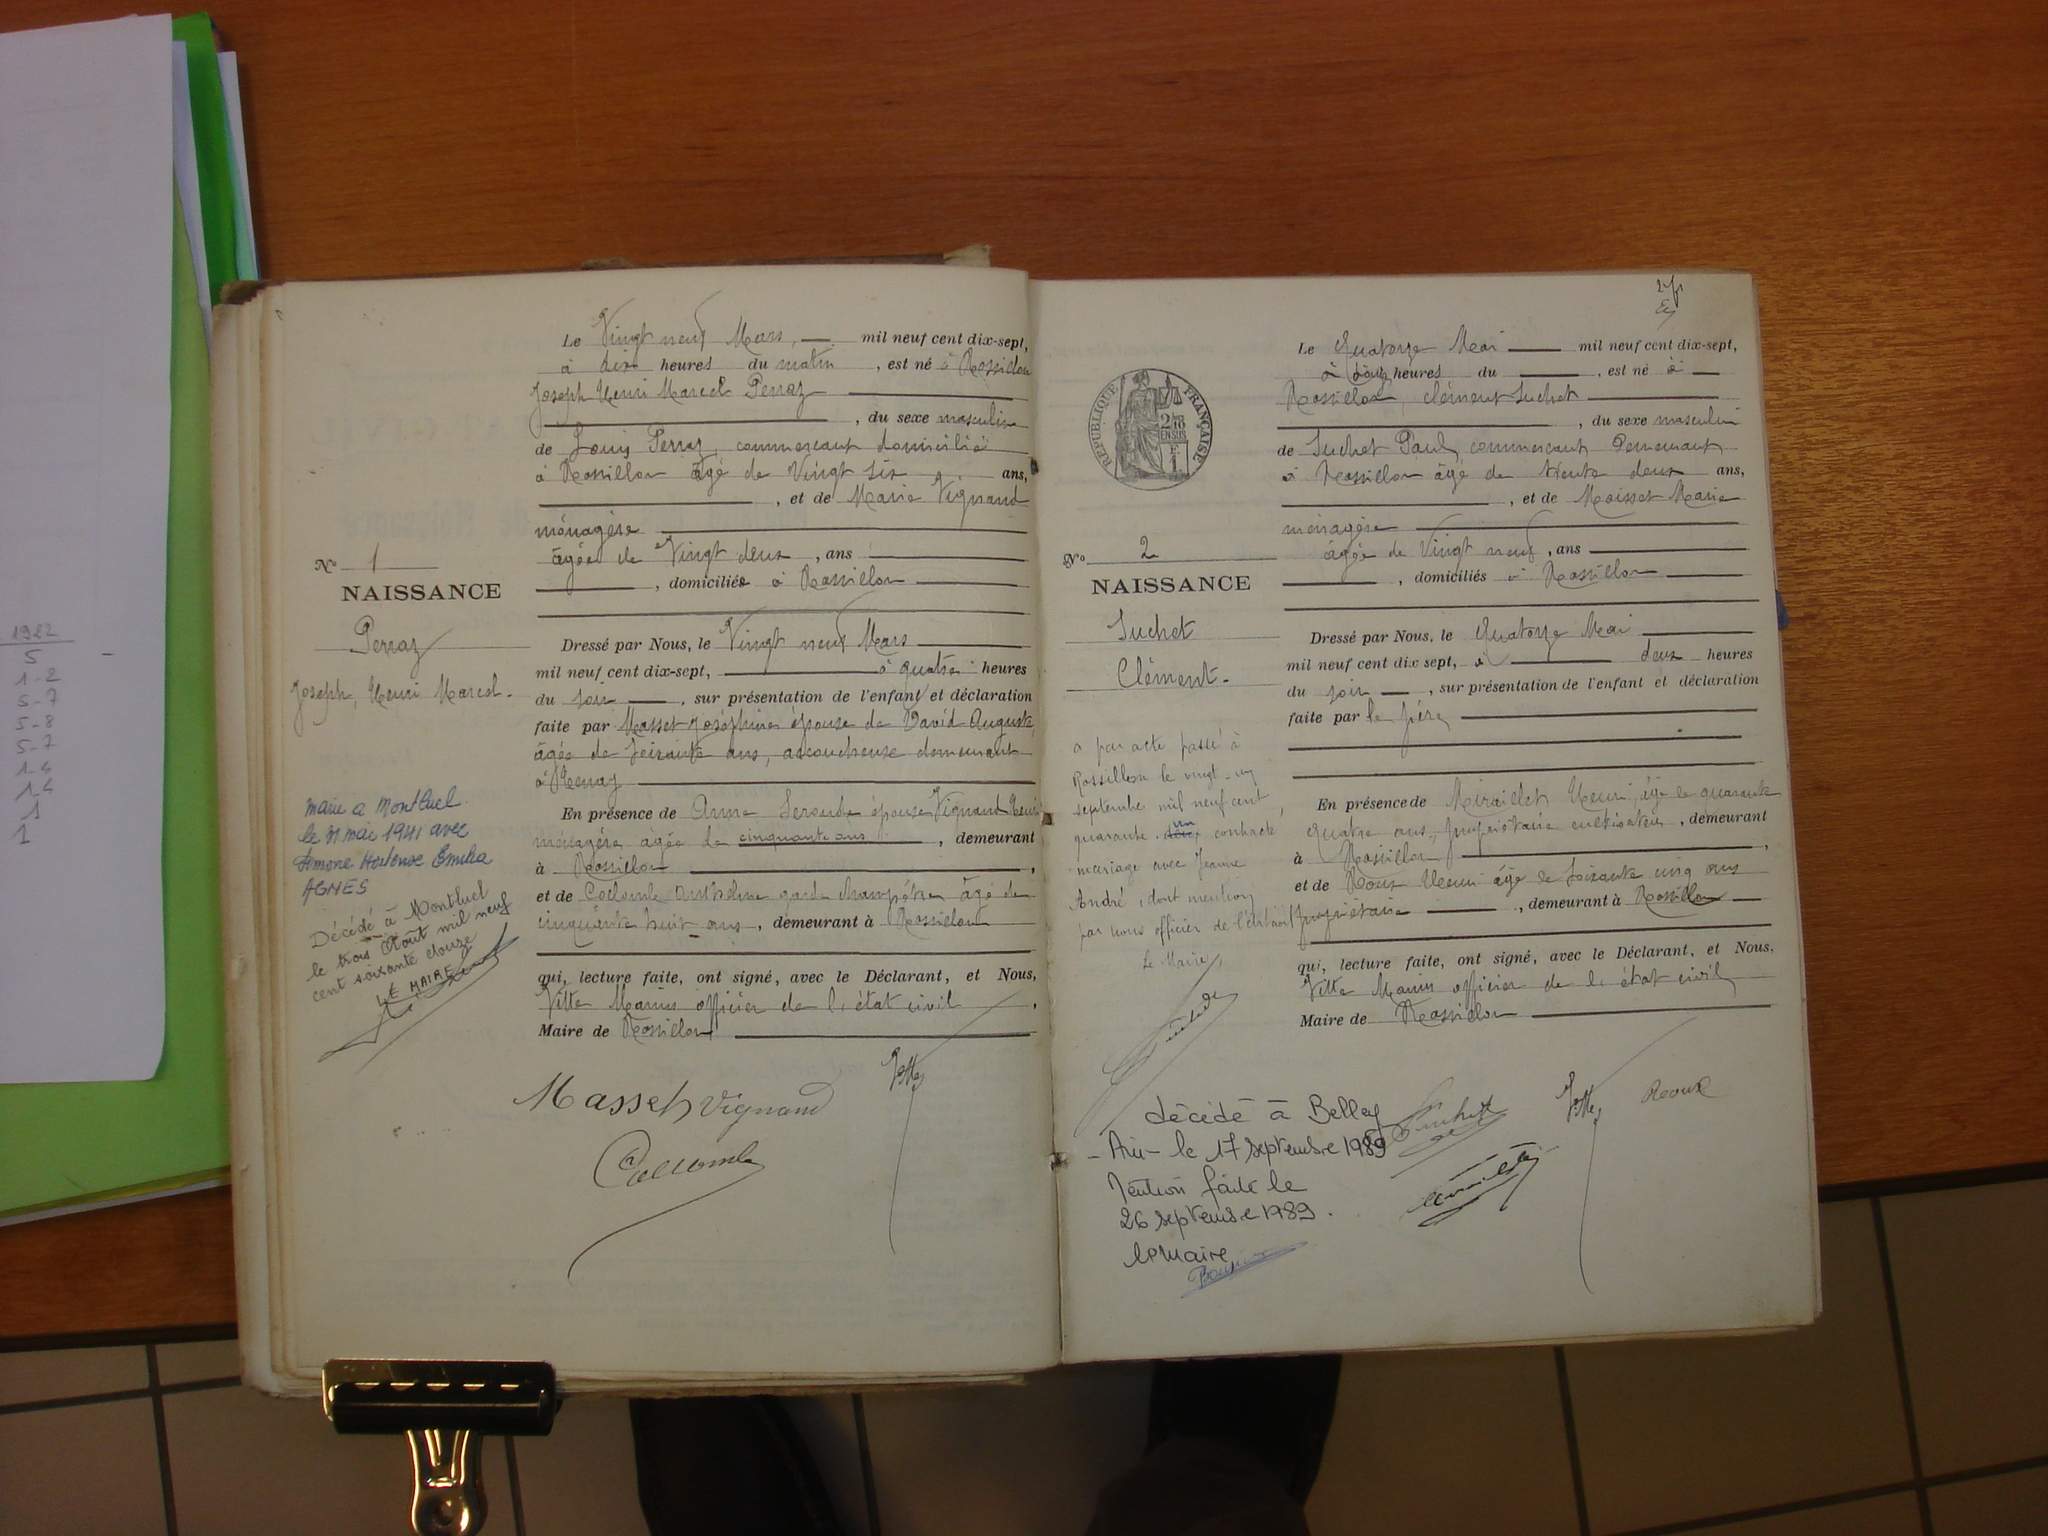 1922
5
1-2
5-7
5-8
5-7
1-4
1-4
1
1
Le Vingt neuf Mars, mil neuf cent dix-sept,
à dix heures du matin, est né à Rossillon
Joseph Henri Marcel Perraz
, du sexe masculin
de Louis Perraz, commerçant domicilié
à Rossillon âgé de Vingt six ans,
, et de Marie Vignand
ménagère
âgée de Vingt deux, ans
, domiciliés à Rossillon
No 1
NAISSANCE
Perraz
Joseph, Henri Marcel.
Dressé par Nous, le Vingt neuf Mars
mil neuf cent dix-sept, à quatre heures
du soir, sur présentation de l'enfant et déclaration
faite par Masset Joséphine épouse de David Auguste
âgée de soixante ans, accoucheuse demeurant
à
En présence de Anna épouse Vignand Henri
ménagère âgée de cinquante ans, demeurant
à Rossillon,
et de Collomb Anthelme garde champêtre âgé de
cinquante huit ans, demeurant à Rossillon
qui, lecture faite, ont signé, avec le Déclarant, et Nous,
Vitte Marius officier de l'état civil,
Maire de Rossillon
Marié à Montluel
le 31 mai 1941 avec
Simone Hortense Emilia
AGNES
Décédé à Montluel
le trois Août mil neuf
cent soixante douze
LE MAIRE
Masset Vignand Vitte
Collomb
Le Quatorze Mai mil neuf cent dix-sept,
à heures du, est né à
Rossillon, Clément Suchet
, du sexe masculin
de Suchet Paul, commerçant demeurant
à Rossillon âgé de trente deux ans,
, et de Moisset Marie
ménagère
âgée de Vingt neuf, ans
, domiciliés à Rossillon
RÉPUBLIQUE FRANÇAISE
2/10
EN SUS
No 2
NAISSANCE
Suchet
Clément.
Dressé par Nous, le Quatorze Mai
mil neuf cent dix sept, à deux heures
du soir, sur présentation de l'enfant et déclaration
faite par le père
En présence de Henri, âgé de quarante
quatre ans, propriétaire cultivateur, demeurant
à Rossillon,
et de Roux Henri âgé de soixante cinq ans
propriétaire, demeurant à Rossillon
qui, lecture faite, ont signé, avec le Déclarant, et Nous,
Vitte Marius officier de l'état civil
Maire de Rossillon
a par acte passé à
Rossillon le vingt-un
septembre mil neuf cent
quarante un contracté
mariage avec Jeanne
André, dont mention
par nous officier de l'état civil
Le Maire
Suchet Vitte Roux
décédé à Belley
- Ain - le 17 septembre 1989
Mention faite le
26 septembre 1989.
le Maire